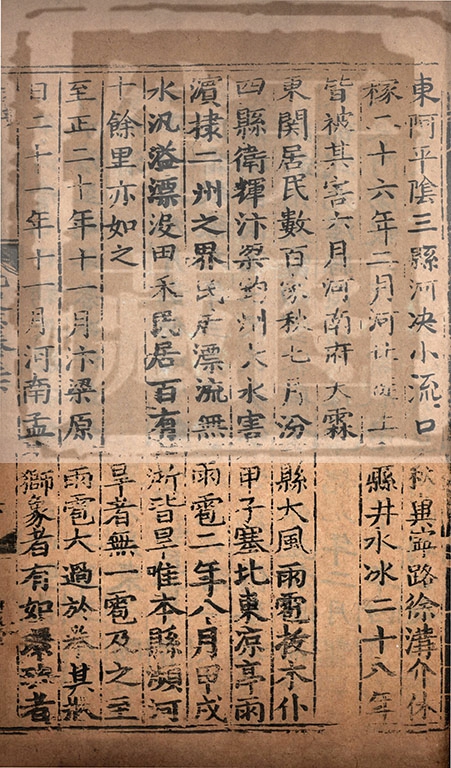 東阿平陰三縣河决小流口秋兾寧路徐溝介休
稼二十六年二月河北徙上縣井水冰二十八年
皆被其害六月河南府大霖
東関居民數百家秋七月汾縣大風雨雹抜木仆
四縣衛輝汴梁鈞州大水害甲子塞北東凉亭雨
濵棣二州之界民居漂流無雨雹二年八月甲戌
水汎溢漂没田禾民居百有浙皆旱唯本縣瀕河
十餘里亦如之旱者無一雹及之至
至正二十年十一月汴梁原雨雹大過於拳其狀
日二十一年十一月河南孟獅象者有如環玦者